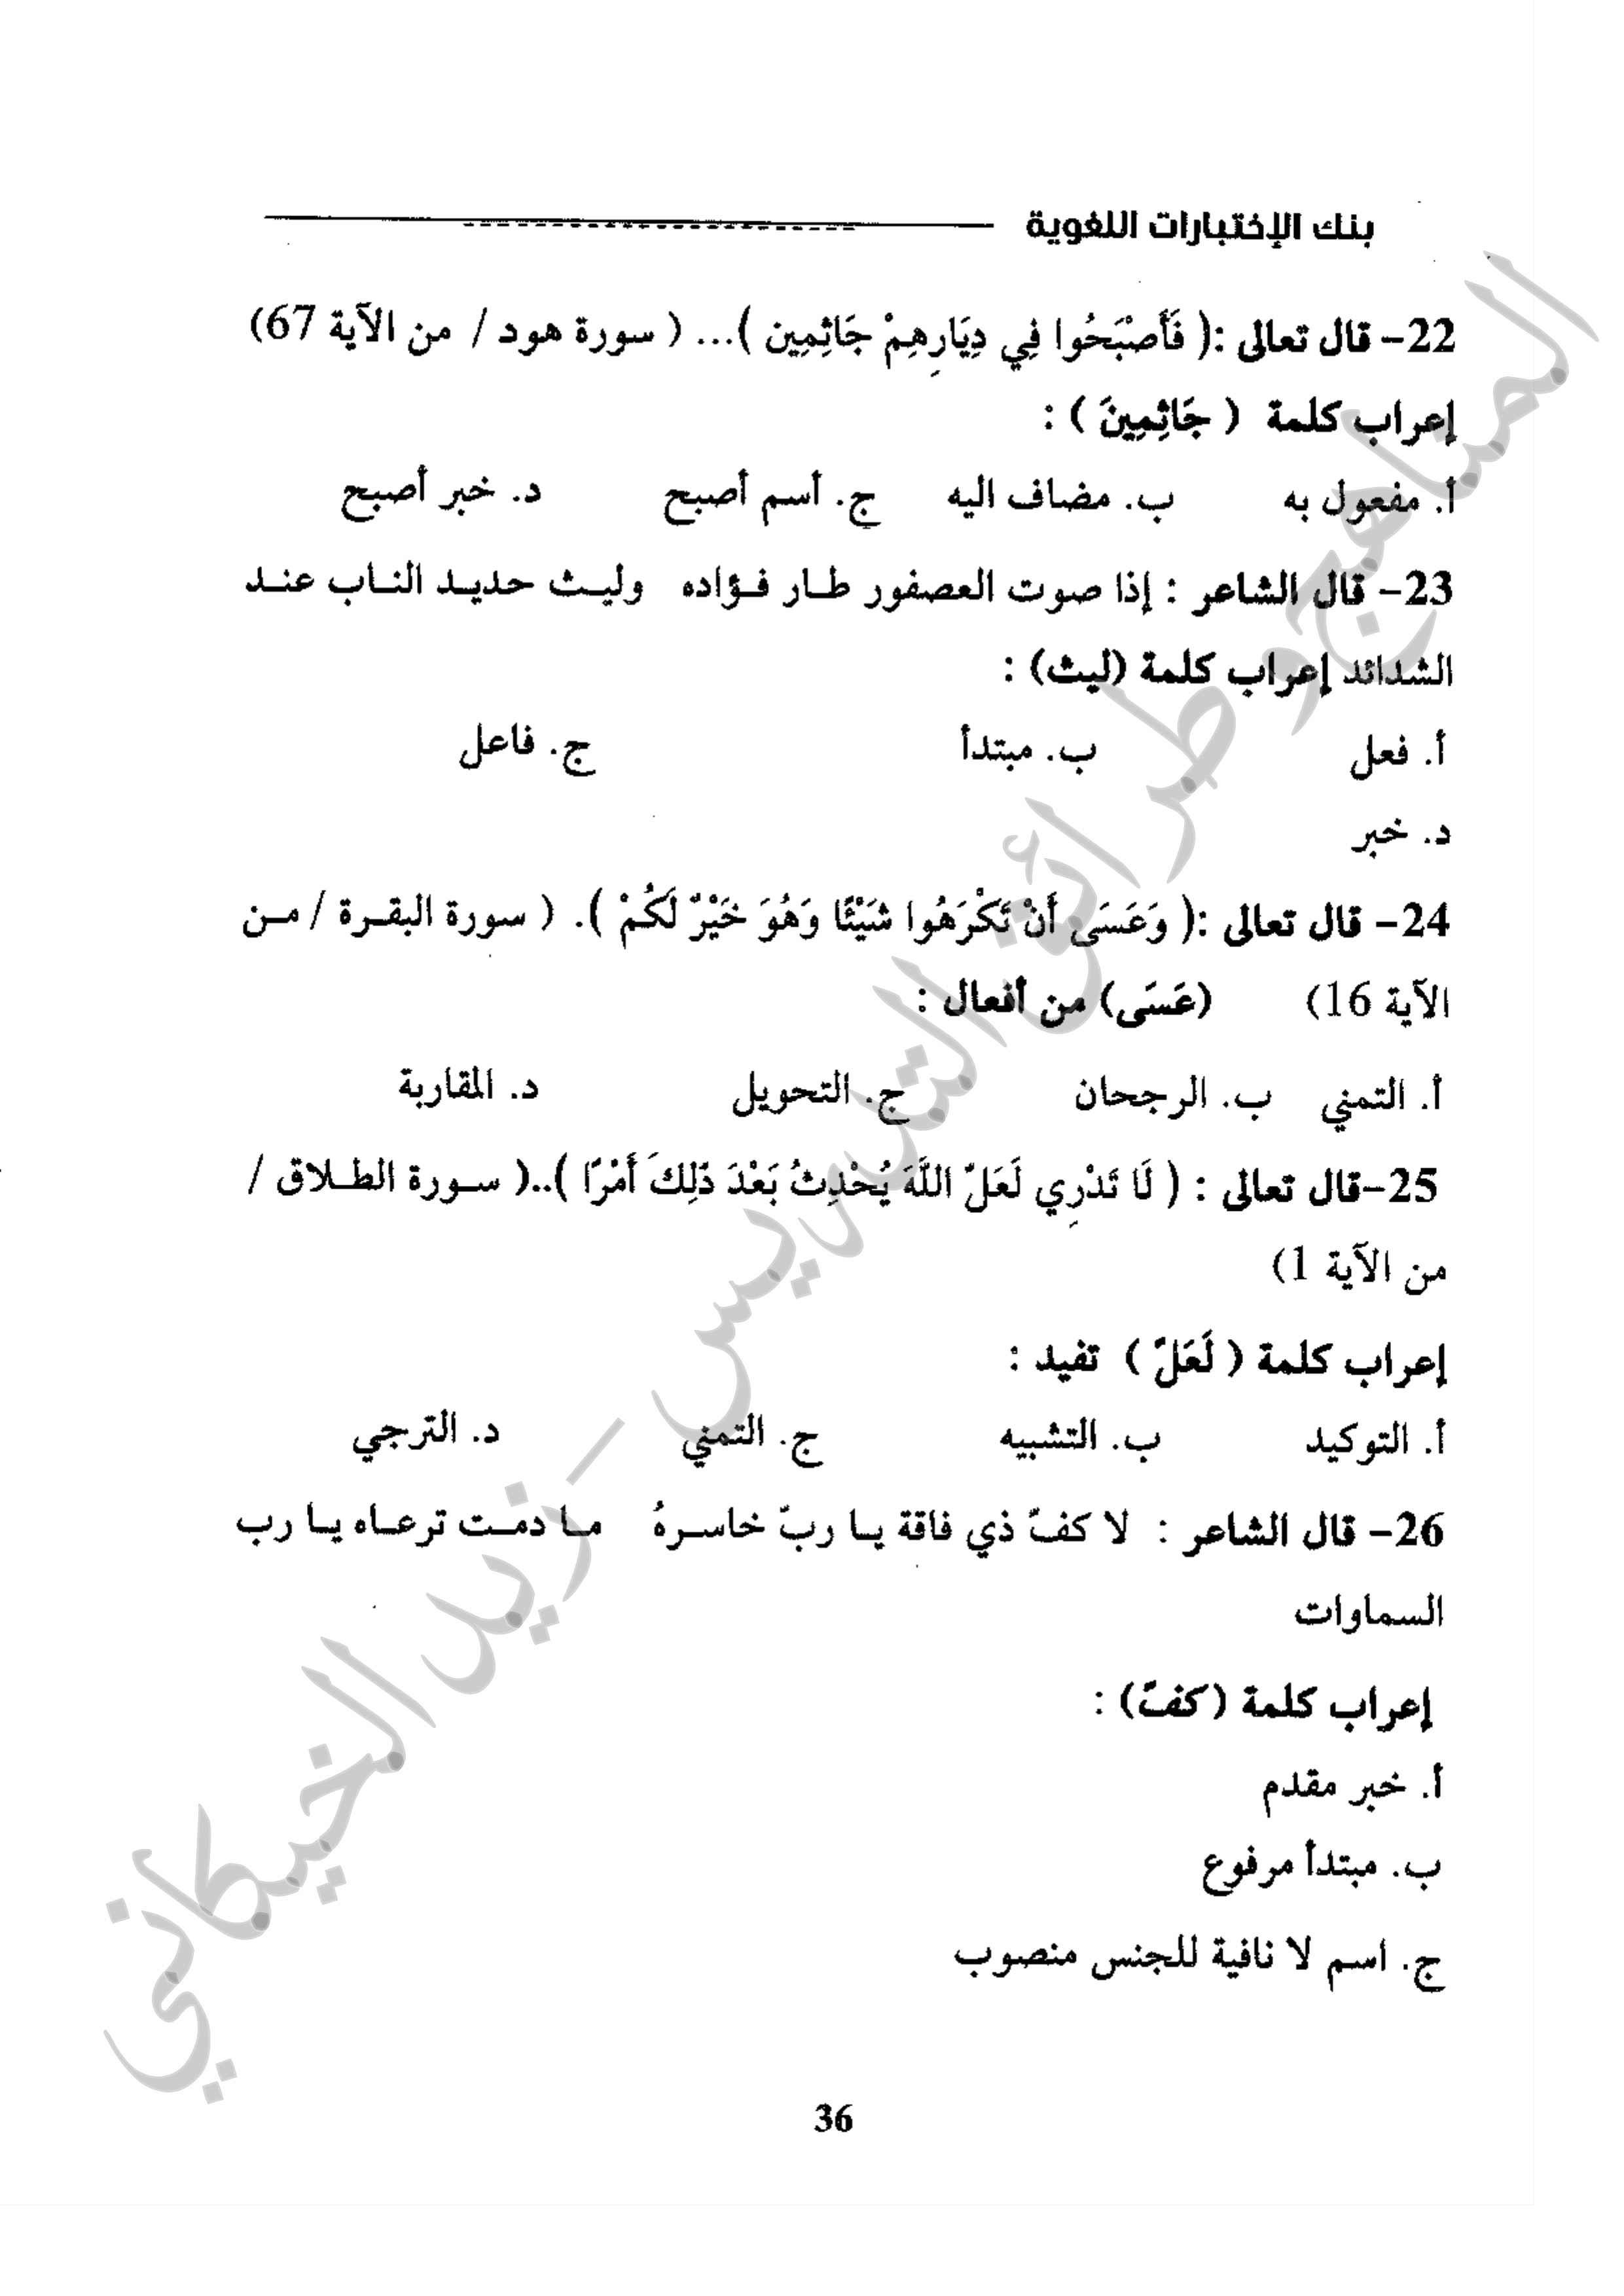 بنك الإختبارات اللغوية
22- قال تعالى :( فَأَصْبَحُوا فِي دِيَارِهِمْ جَاثِمِين )... ( سورة هود / من الآية 67)
إعراب كلمة ( جَاثِمِينَ ) :
أ. مفعول به ب. مضاف اليه ج. أسم أصبح د. خبر أصبح
23- قال الشاعر : إذا صوت العصفور طار فؤاده وليث حديد الناب عند
الشدائد إعراب كلمة (ليث) :
أ. فعل ب. مبتدأ ج. فاعل
د. خبر
24- قال تعالى :( وَعَسَى أَنْ تَكْرَهُوا شَيْئًا وَهُوَ خَيْرٌ لَكُمْ ). ( سورة البقرة / من
الآية 16) (عَسَى) من أفعال :
أ. التمني ب. الرجحان ج. التحويل د. المقاربة
25-قال تعالى : ( لَا تَدْرِي لَعَلَّ اللَّهَ يُحْدِثُ بَعْدَ ذَلِكَ أَمْرًا )..( سورة الطلاق /
من الآية 1)
إعراب كلمة ( لَعَلَّ ) تفيد :
أ. التوكيد ب. التشبيه ج. التمني د. الترجي
26- قال الشاعر : لا كفّ ذي فاقة يا ربّ خاسرهُ ما دمت ترعاه يا رب
السماوات
إعراب كلمة (كفّ) :
أ. خبر مقدم
ب. مبتدأ مرفوع
ج. اسم لا نافية للجنس منصوب
36
المناهج وطرائق التدريس - زيد الخيكاني